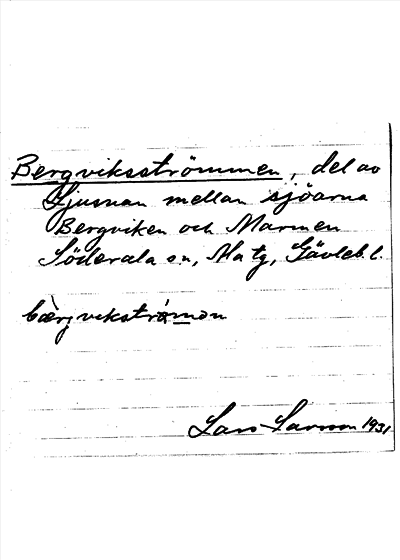 Bergviksströmmen, del av
Ljusnan mellan sjöarna
Bergviken och Marmen
Söderala sn, Ala tg, Gävleb. l.
bærjvikströmən
Lars Larsson 1931